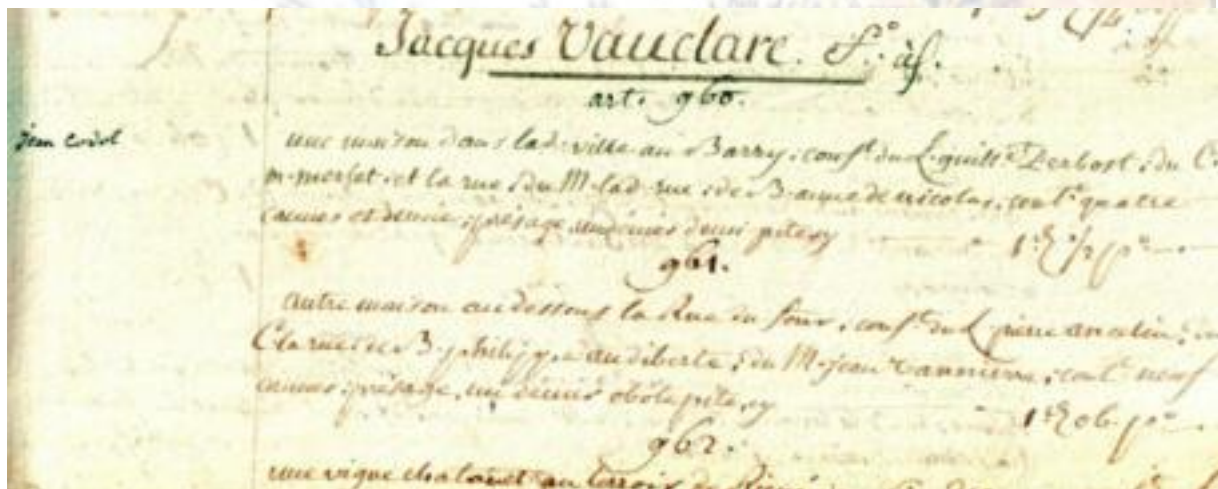 Jacques Vauclare. f.º à f.
art. 960.
jean codol
une maison dans lad. ville au Barry, conf.t du L. guill.e Derbost, du C.
et la rue, du M. lad. rue, de B. anne de nicolas, cont.e quatre
cannes et demie, présage un denier demi pite, cy
961.
autre maison au dessous la Rue du four, conf.t du L. pierre
C. la rue, de B. philippe audiberte, du M. jean vannieire, cont.e neuf
cannes, présage, un denier obole pite, cy
962.
une vigne au terroir de